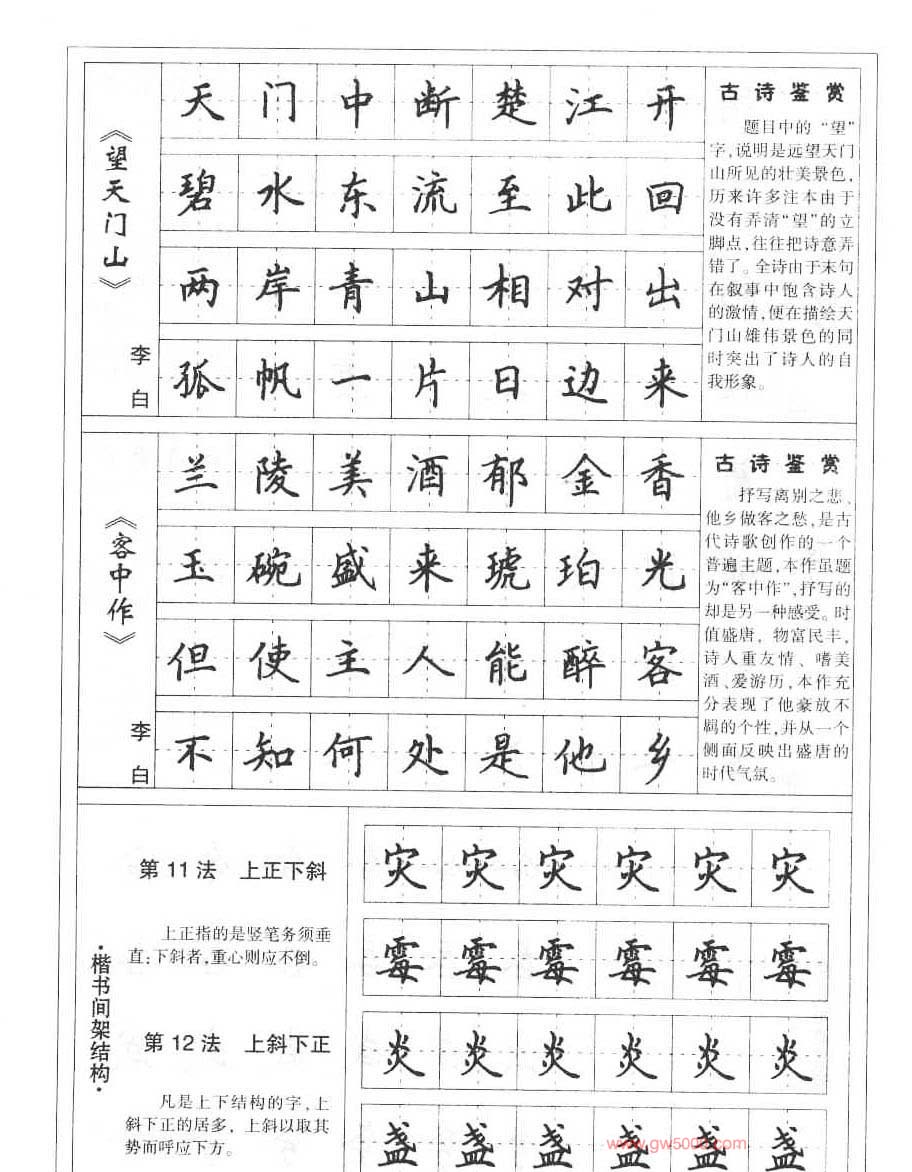 《望天门山》
李白
天门中断楚江开
碧水东流至此回
两岸青山相对出
孤帆一片日边来
古诗鉴赏
题目中的“望”
字,说明是远望天门
山所见的壮美景色,
历来许多注本由于
没有弄清“望”的立
脚点,往往把诗意弄
错了。全诗由于末句
在叙事中饱含诗人
的激情,便在描绘天
门山雄伟景色的同
时突出了诗人的自
我形象。
《客中作》
李白
兰陵美酒郁金香
玉碗盛来琥珀光
但使主人能醉客
不知何处是他乡
古诗鉴赏
抒写离别之悲、
他乡做客之愁,是古
代诗歌创作的一个
普遍主题,本作虽题
为“客中作”,抒写的
却是另一种感受。时
值盛唐,物富民丰,
诗人重友情、嗜美
酒、爱游历,本作充
分表现了他豪放不
羁的个性,并从一个
侧面反映出盛唐的
时代气氛。
·楷书间架结构·
第11法 上正下斜
上正指的是竖笔务须垂
直;下斜者,重心则应不倒。
第12法 上斜下正
凡是上下结构的字,上
斜下正的居多,上斜以取其
势而呼应下方。
灾灾灾灾灾灾
霉霉霉霉霉霉
炎炎炎炎炎炎
盏盏盏盏盏盏
www.gw5000.com